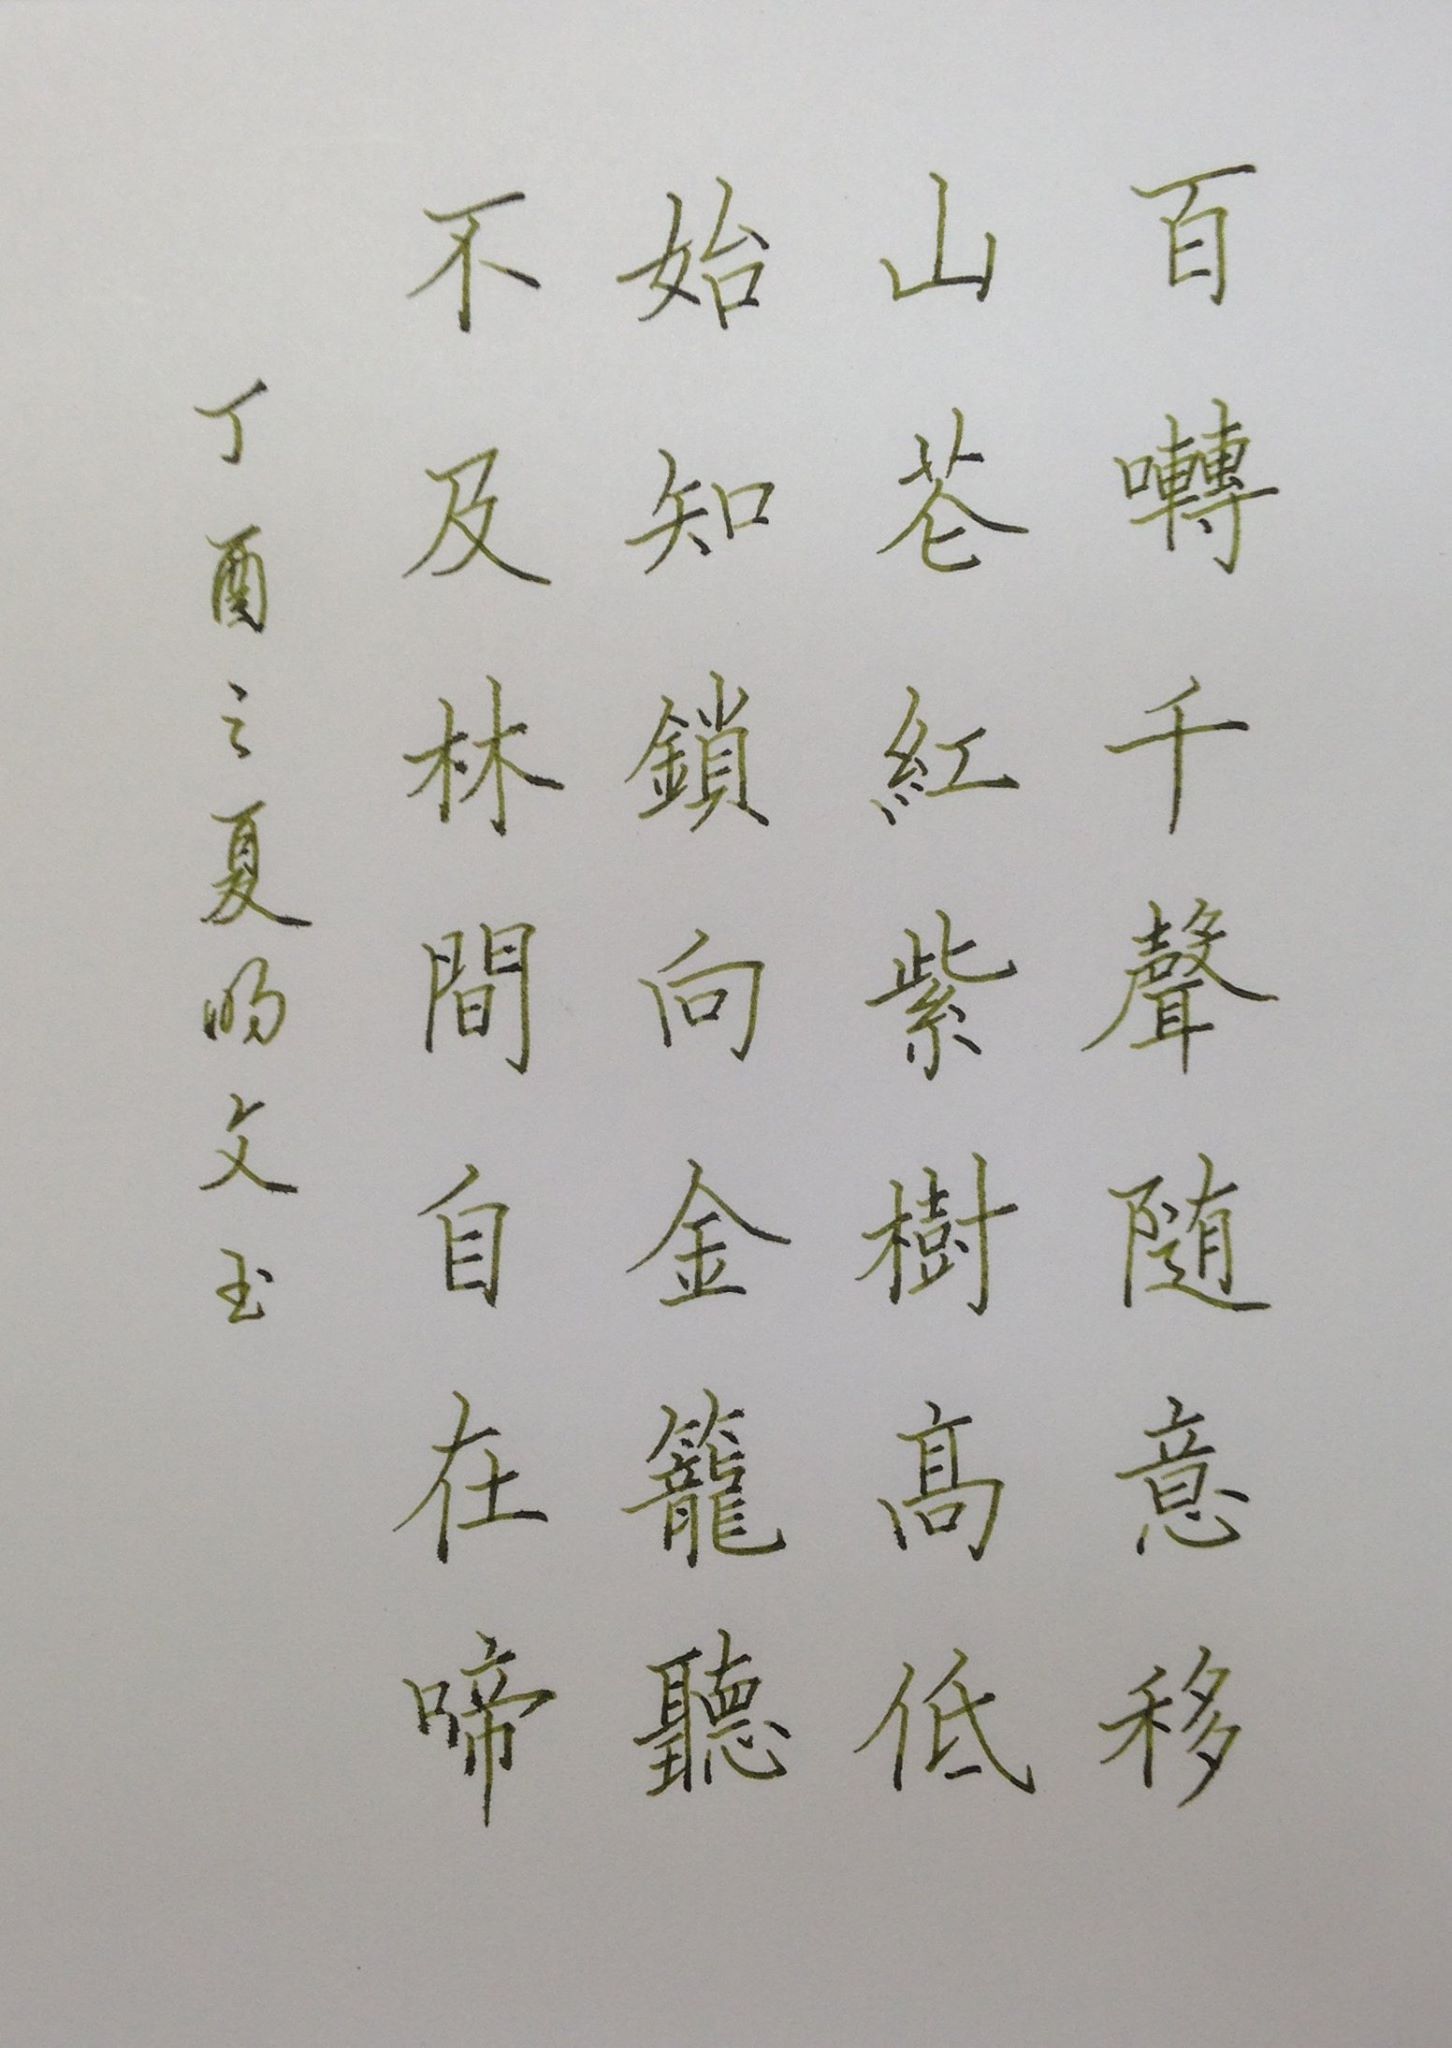 百囀千聲随意移
山花紅紫樹髙低
始知鎖向金籠聽
不及林間自在啼
丁酉之夏明文玉